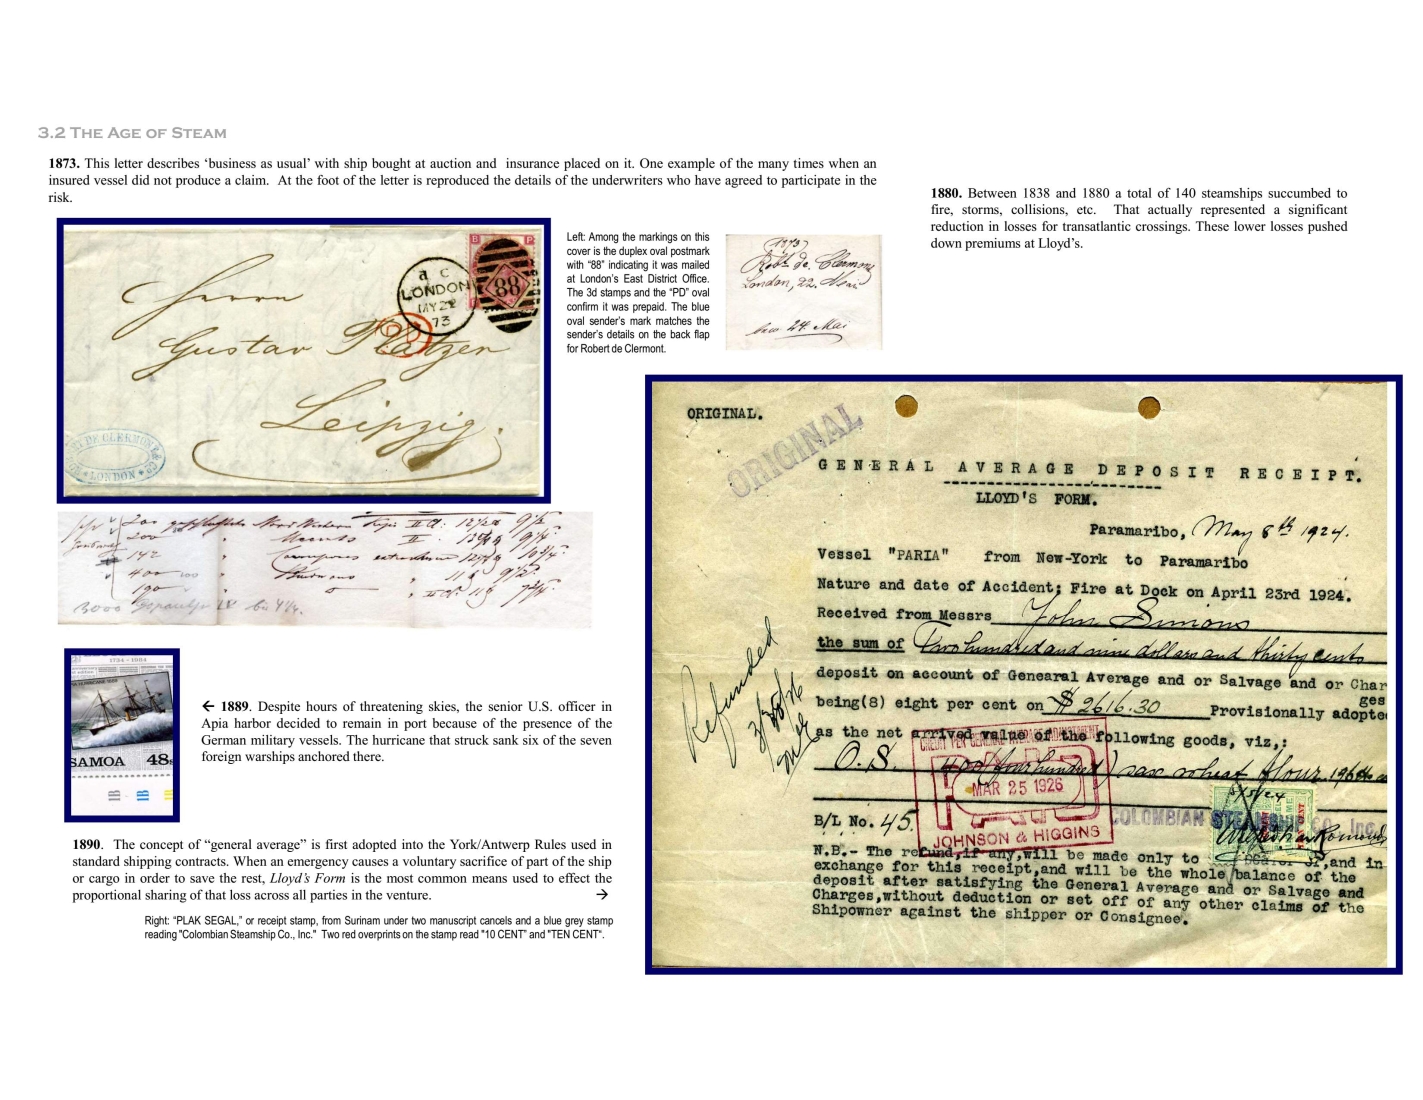 3.2 THE AGE OF STEAM
1873. This letter describes ‘business as usual’ with ship bought at auction and insurance placed on it. One example of the many times when an
insured vessel did not produce a claim. At the foot of the letter is reproduced the details of the underwriters who have agreed to participate in the
risk.
1880. Between 1838 and 1880 a total of 140 steamships succumbed to
fire, storms, collisions, etc. That actually represented a significant
reduction in losses for transatlantic crossings. These lower losses pushed
down premiums at Lloyd’s.
B P
88
a c
LONDON
MY 22
73
PD
Herrn
Gustav Platzen
Leipzig.
DE CLERMONT
LONDON
Left: Among the markings on this
cover is the duplex oval postmark
with “88” indicating it was mailed
at London’s East District Office.
The 3d stamps and the “PD” oval
confirm it was prepaid. The blue
oval sender’s mark matches the
sender’s details on the back flap
for Robert de Clermont.
1873
Robt. de Clermont
London, 22. Mai
24. Mai
200
200
142
400
190
3000
1734-1984
SAMOA 48s
1B 1B 1B
← 1889. Despite hours of threatening skies, the senior U.S. officer in
Apia harbor decided to remain in port because of the presence of the
German military vessels. The hurricane that struck sank six of the seven
foreign warships anchored there.
1890. The concept of “general average” is first adopted into the York/Antwerp Rules used in
standard shipping contracts. When an emergency causes a voluntary sacrifice of part of the ship
or cargo in order to save the rest, Lloyd’s Form is the most common means used to effect the
proportional sharing of that loss across all parties in the venture. →
Right: “PLAK SEGAL,” or receipt stamp, from Surinam under two manuscript cancels and a blue grey stamp
reading "Colombian Steamship Co., Inc." Two red overprints on the stamp read "10 CENT” and "TEN CENT".
ORIGINAL.
ORIGINAL
GENERAL AVERAGE DEPOSIT RECEIPT.
LLOYD'S FORM.
Paramaribo, May 8th 1924.
Vessel "PARIA" from New-York to Paramaribo
Nature and date of Accident; Fire at Dock on April 23rd 1924.
Received from Messrs John Simons
the sum of Two hundred and nine dollars and thirty cents
deposit on account of Genearal Average and or Salvage and or Char
ges
being(8) eight per cent on $ 2616.30 Provisionally adopte
as the net arrived value of the following goods, viz,:
O.S. 400 (four hundred) sax wheat flour 196
Refunded
MAR 25 1926
JOHNSON & HIGGINS
B/L No. 45.
COLOMBIAN STEAMSHIP CO. Inc.
N.B.- The refund,if any,will be made only to ,and in
exchange for this receipt,and will be the whole balance of the
deposit after satisfying the General Average and or Salvage and
Charges,without deduction or set off of any other claims of the
Shipowner against the shipper or Consignee.